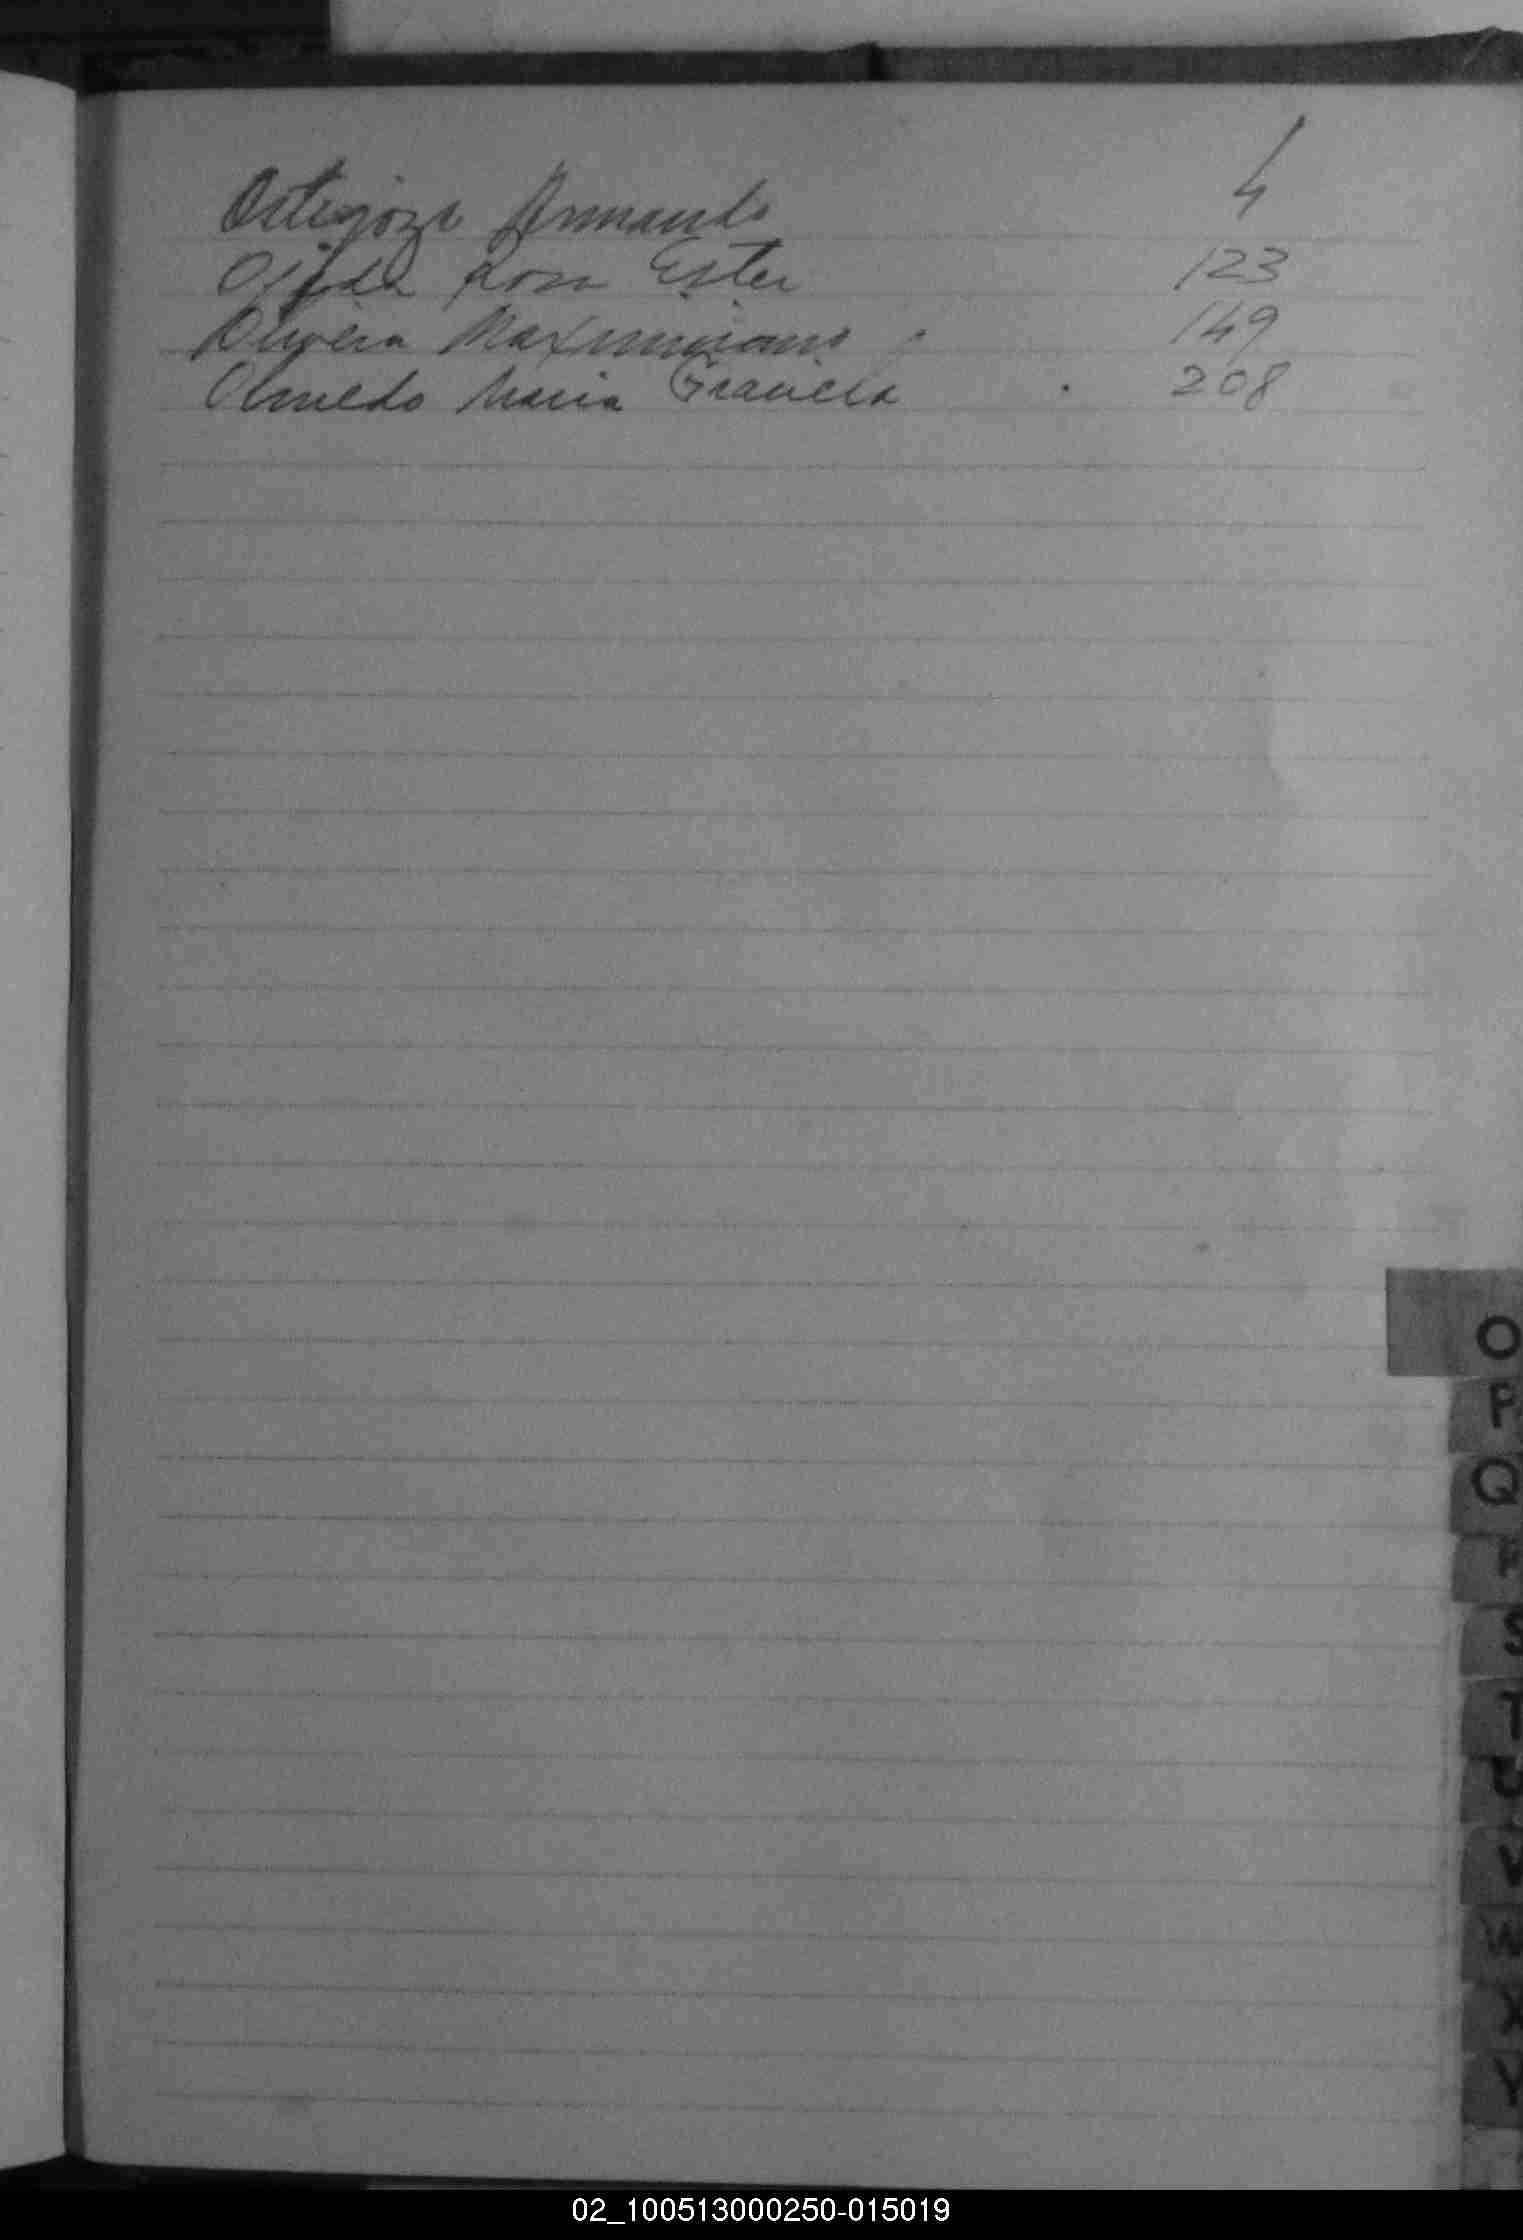 Ortigoza Armando 4
Ojeda Rosa Ester 123
Olivera Maximiano 149
Olmedo Maria Graciela 208
O
P
Q
R
S
T
U
V
W
X
Y
02_100513000250-015019